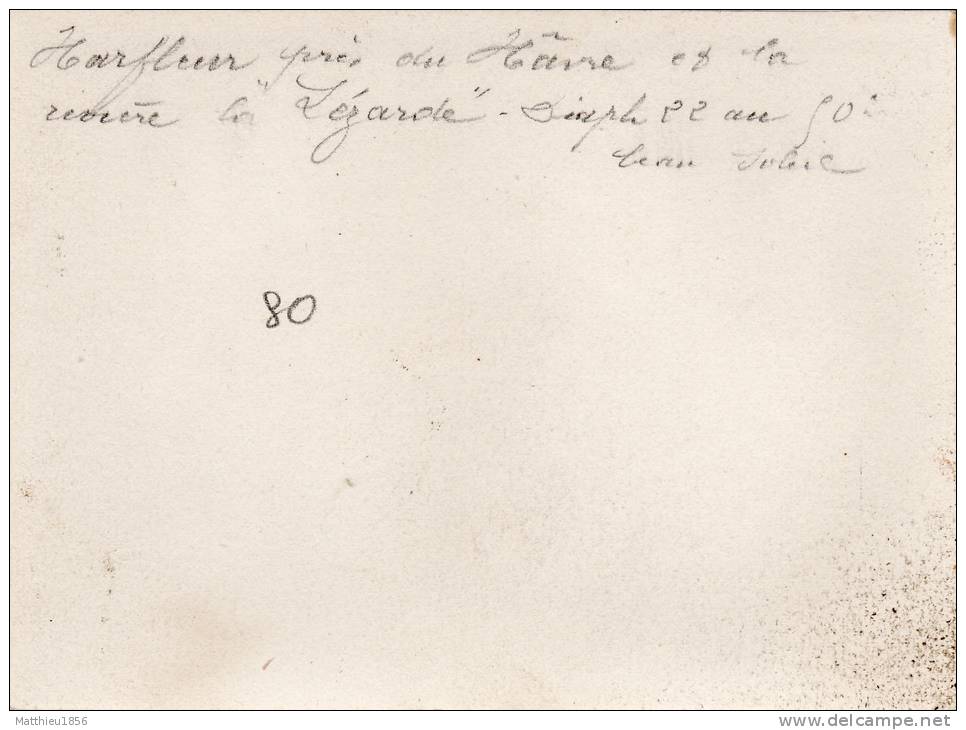 Harfleur près du Hâvre et la
rivière la "Lézarde" - Diaph 22 au 50è
beau soleil
80
Matthieu1856
delcampe.net